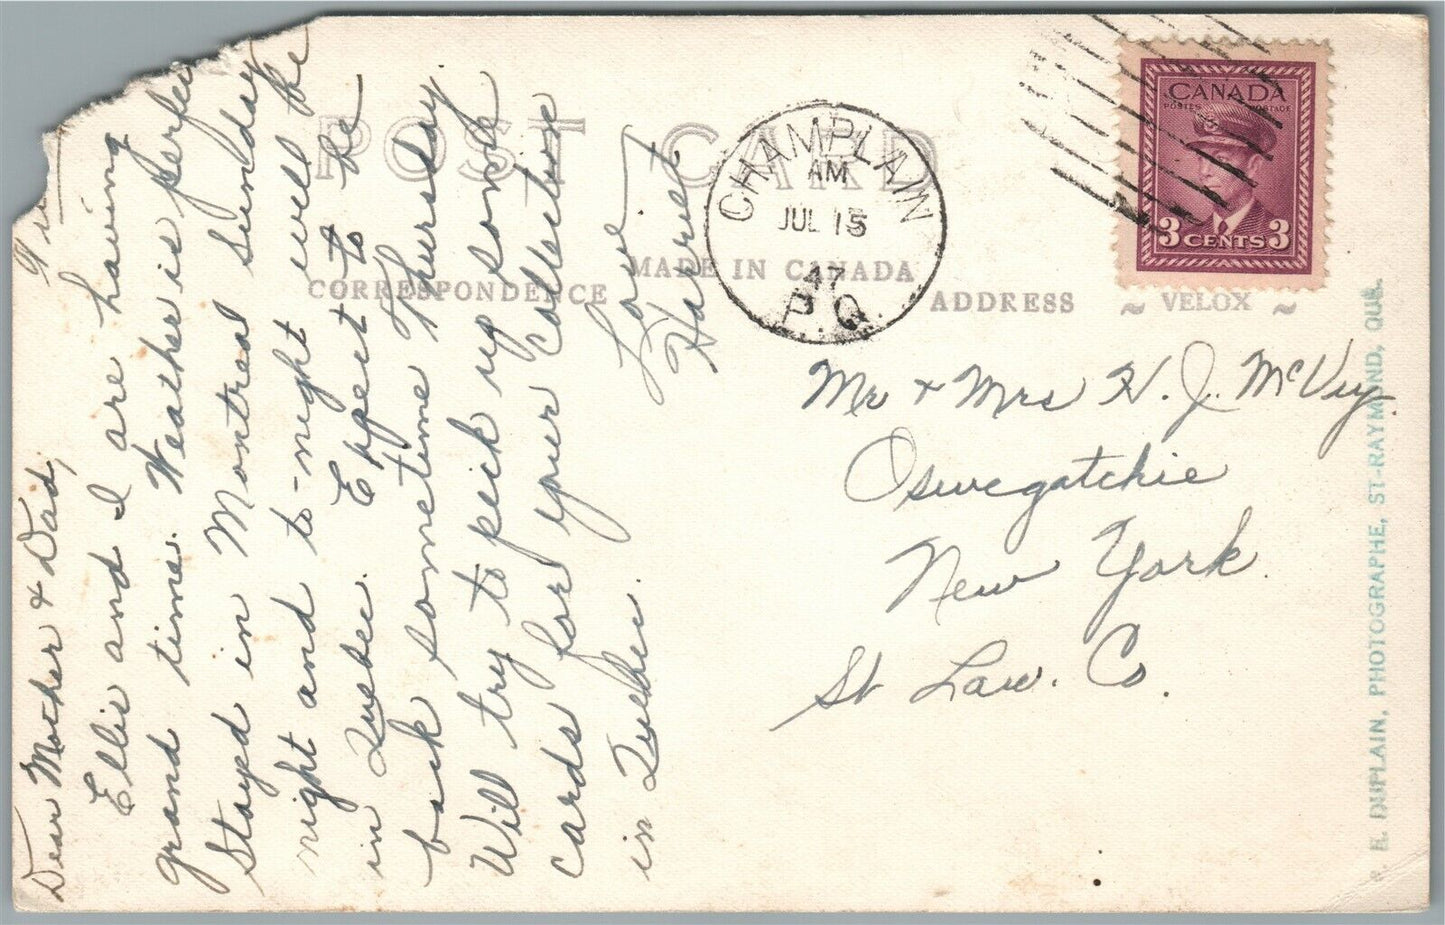 POST CARD
CORRESPONDENCE
MADE IN CANADA
ADDRESS
VELOX
CHAMPLAIN
AM
JUL 15
47
P.Q.
CANADA
POSTES POSTAGE
3 CENTS 3
Dear Mother & Dad,
Ellie and I are having
grand time. Weather is perfec
Stayed in Montreal Sunday
night and to-night will be
in Quebec. Expect to be
back sometime Thursday
Will try to pick up some
cards for your collection
in Quebec.
Love
Harriet
Mr & Mrs H. J. McVey
Oswegatchie
New York
St Law. Co.
E. DUPLAIN, PHOTOGRAPHE, ST-RAYMOND, QUE.